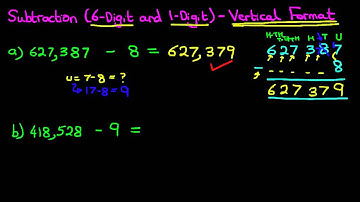 Subtraction (6-Digit and 1-Digit) - Vertical Format
a) 627,387 - 8 = 627,379
U = 7-8 = ?
17-8 = 9
H-TH T-TH TH H T U
6 2 7 3 8 7
- 8
6 2 7 3 7 9
b) 418,528 - 9 =